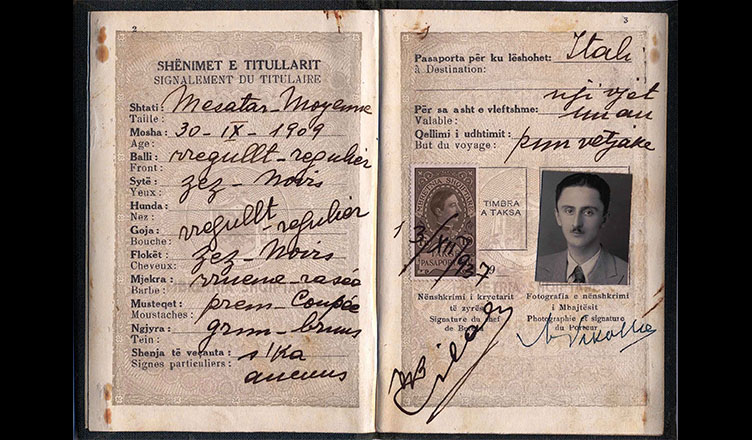 2
SHËNIMET E TITULLARIT
SIGNALEMENT DU TITULAIRE
Shtati : Mesatar - Moyenne
Taille :
Mosha : 30 - IX - 1909
Age :
Balli : rregullt - regulier
Front :
Sytë : zez - Noirs
Yeux :
Hunda :
Nez : rregullt - regulier
Goja :
Bouche :
Flokët : zez - Noirs
Cheveux :
Mjekra : rrueme - rasée
Barbe :
Musteqet : prem - Coupée
Moustaches :
Ngjyra : grun - brun
Tein :
Shenja të veçanta : s'Ka
Signes particuliers : aucuns
3
Pasaporta për ku lëshohet : Itali
à Destination :
nji vjet
Për sa asht e vleftshme :
Valable : un an
Qellimi i udhtimit : pun vetjake
But du voyage :
TIMBRA
A TAKSA
PASAPORT
13/XII/937
Nënshkrimi i kryetarit
të zyrës
Signature du chef
de Bureau
Fotografia e nënshkrimi
i Mbajtësit
Photographie et signature
du Porteur